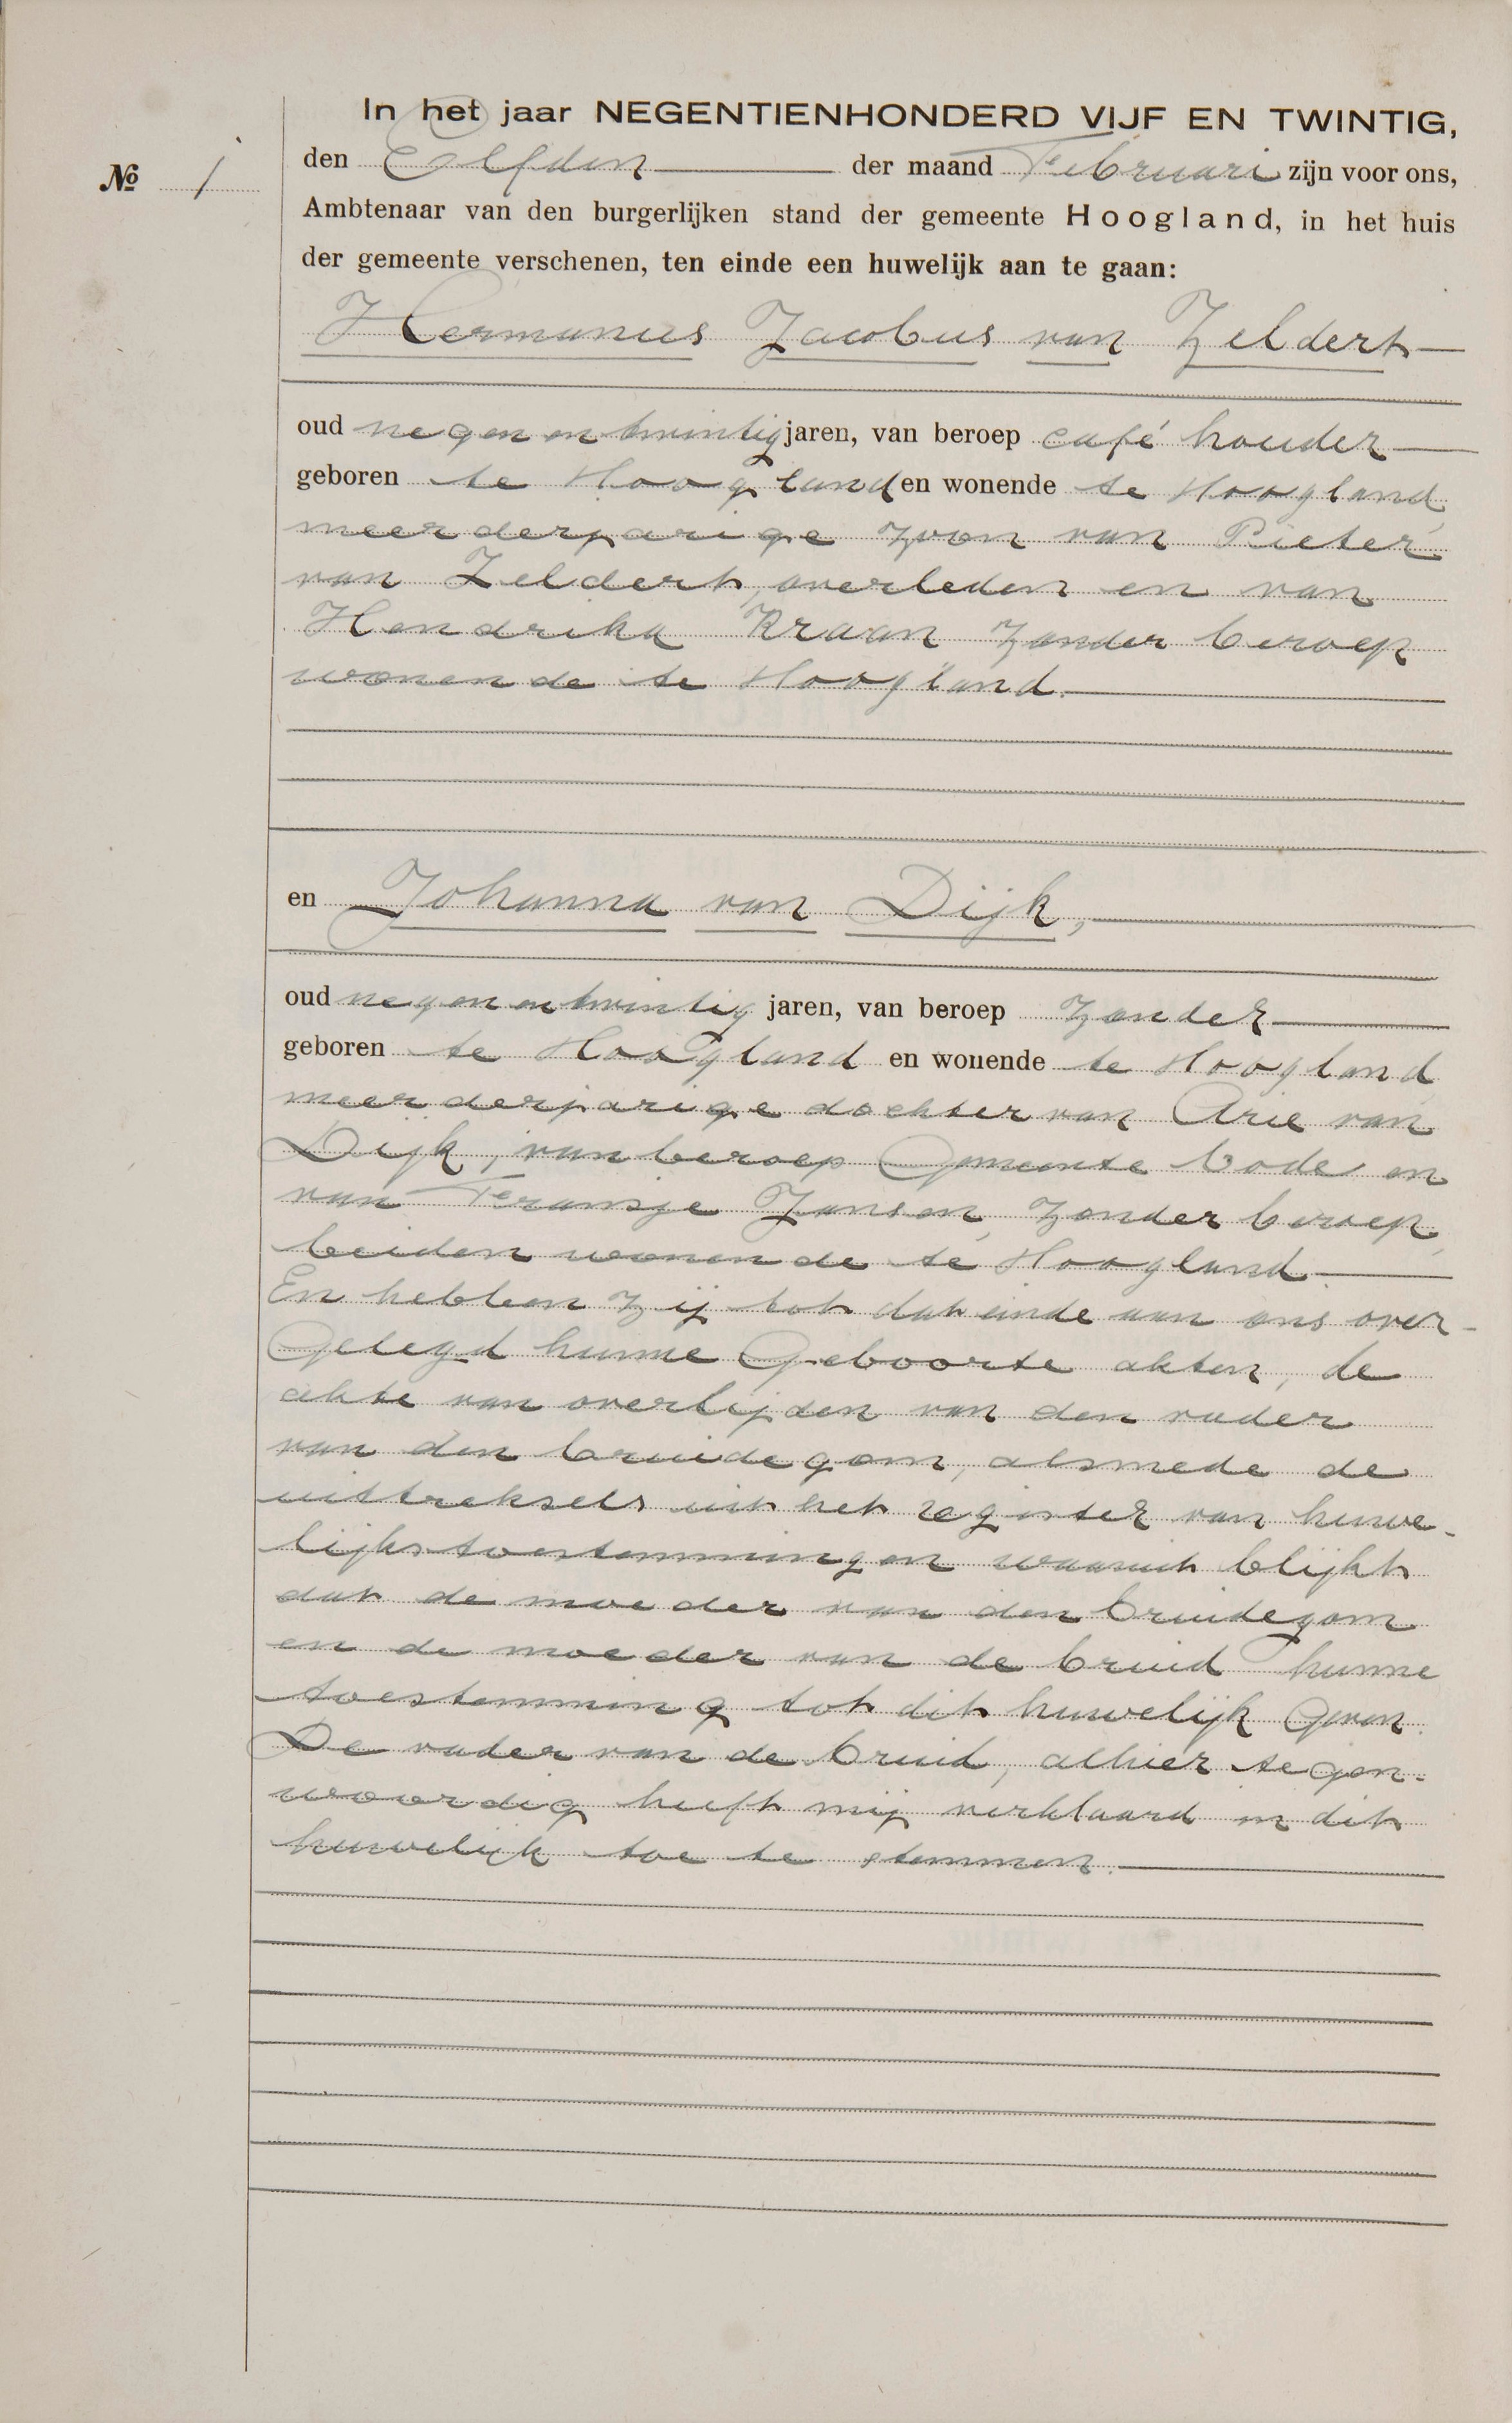 In het jaar NEGENTIENHONDERD VIJF EN TWINTIG,
№ 1
den Elfden der maand Februari zijn voor ons,
Ambtenaar van den burgerlijken stand der gemeente Hoogland, in het huis
der gemeente verschenen, ten einde een huwelijk aan te gaan:
Hermanus Jacobus van Zeldert
oud negen en twintig jaren, van beroep café houder
geboren te Hoogland en wonende te Hoogland
meerderjarige zoon van Pieter
van Zeldert, overleden en van
Hendrika Kraan zonder beroep
wonende te Hoogland.
en Johanna van Dijk,
oud negen en twintig jaren, van beroep zonder
geboren te Hoogland en wonende te Hoogland
meerderjarige dochter van Arie van
Dijk, van beroep Gemeente bode en
van Fransje Jansen, zonder beroep,
beiden wonende te Hoogland.
En hebben zij tot dat einde aan ons over-
gelegd hunne Geboorte akten, de
akte van overlijden van den vader
van den bruidegom, alsmede de
uittreksels uit het register van huwe-
lijkstoestemmingen waaruit blijkt
dat de moeder van den bruidegom
en de moeder van de bruid hunne
toestemming tot dit huwelijk geven.
De vader van de bruid, alhier tegen-
woordig heeft mij verklaard in dit
huwelijk toe te stemmen.